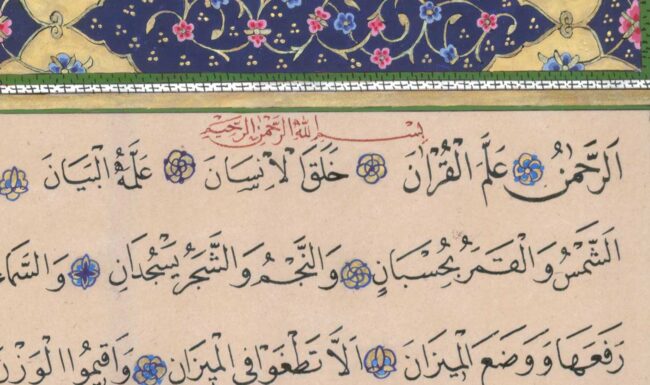 بِسْمِ اللّٰهِ الرَّحْمٰنِ الرَّحِيمِ
اَلرَّحْمٰنُ عَلَّمَ الْقُرْاٰنَ خَلَقَ الْاِنْسَانَ عَلَّمَهُ الْبَيَانَ
اَلشَّمْسُ وَالْقَمَرُ بِحُسْبَانٍ وَالنَّجْمُ وَالشَّجَرُ يَسْجُدَانِ
رَفَعَهَا وَوَضَعَ الْمِيزَانَ اَلَّا تَطْغَوْا فِي الْمِيزَانِ وَاَقِيمُوا